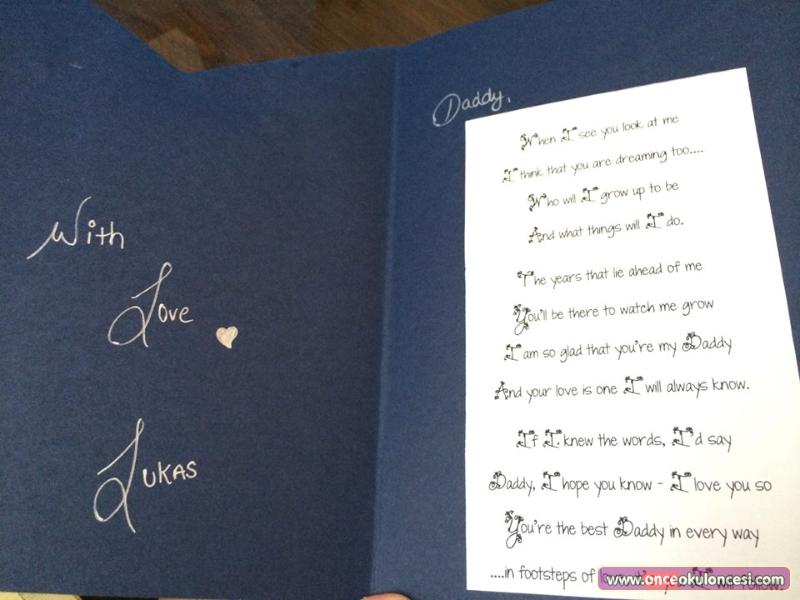 With
Love
Lukas
Daddy,
When I see you look at me
I think that you are dreaming too....
Who will I grow up to be
And what things will I do.
The years that lie ahead of me
You'll be there to watch me grow
I am so glad that you're my Daddy
And your love is one I will always know.
If I knew the words, I'd say
Daddy, I hope you know - I love you so
You're the best Daddy in every way
....in footsteps of
www.onceokuloncesi.com